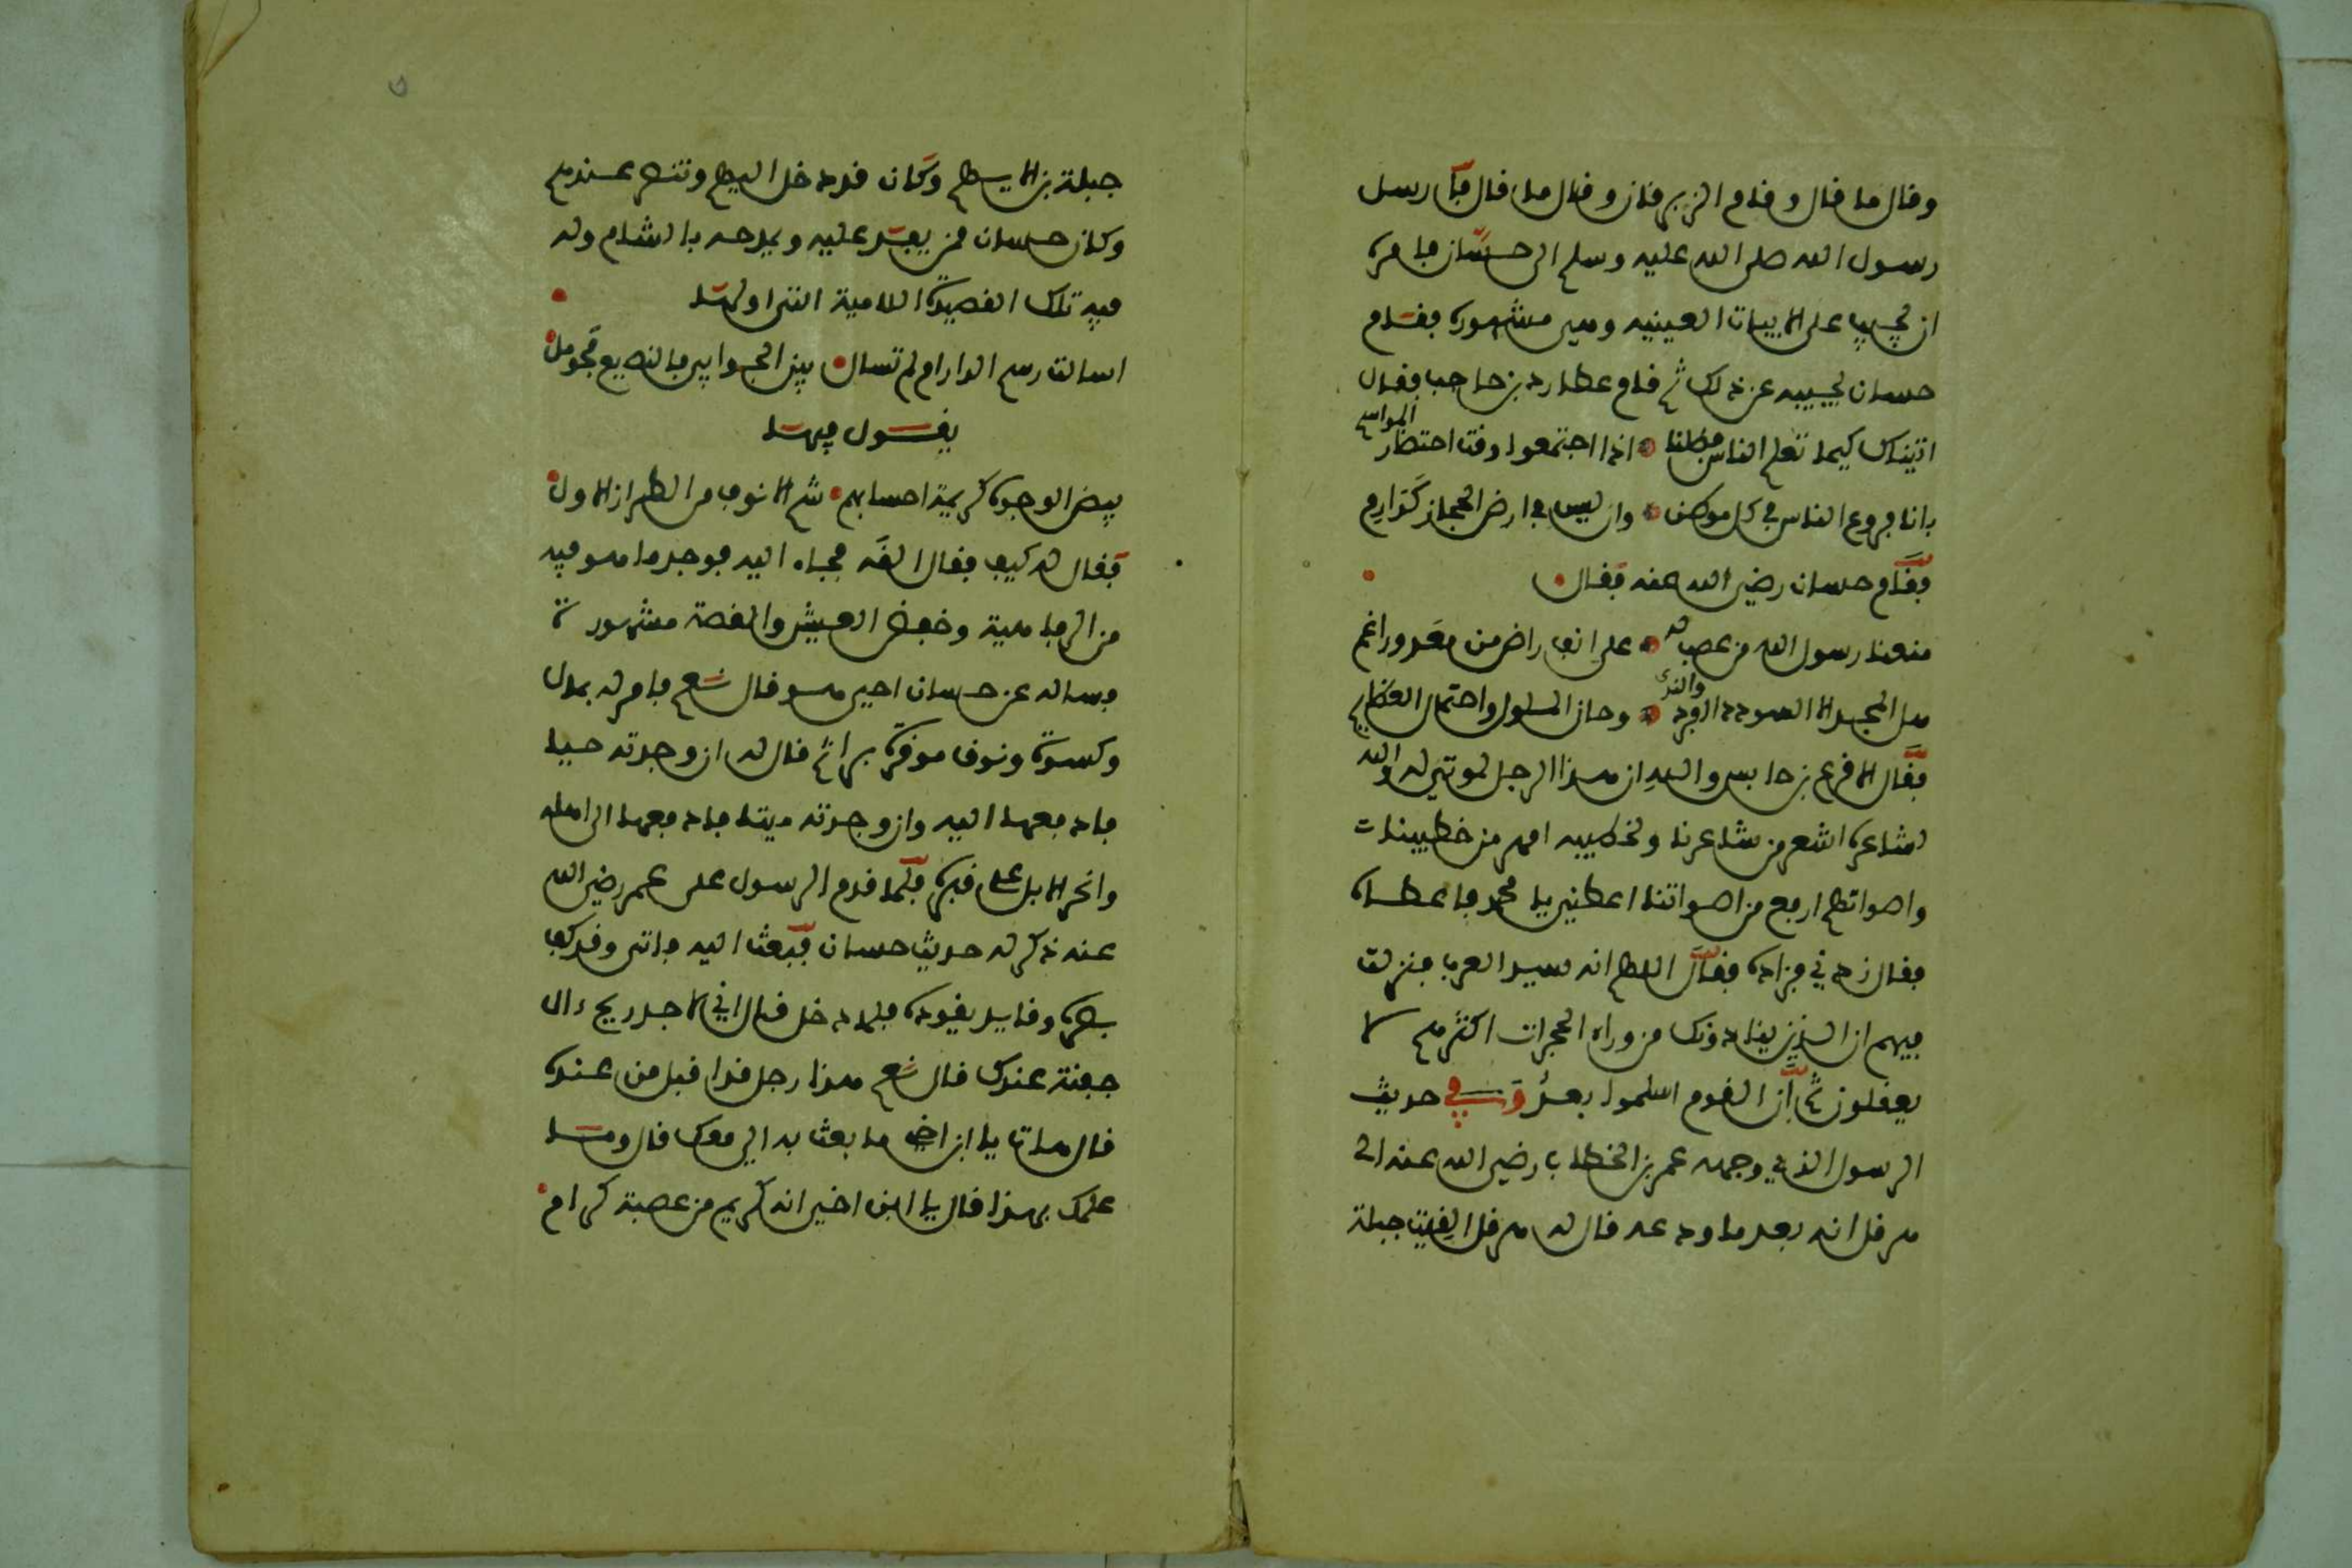 وقال ما قال وقام الزبرقان وقال ما قال فأرسل
رسول الله صلى الله عليه وسلم الى حسان فامره
ان يجيب على الابيات العينيه وهي مشهورة فقام
حسان يجيبه عن ذلك ثم قام عطارد بن حاجب فقال
اتيناك كيما تعلم الناس فضلنا • اذا اجتمعوا وقت احتضار المواسم
بانا فروع الناس في كل موطن • وان ليس في ارض الحجاز كدارم
فقام حسان رضي الله عنه فقال •
منعنا رسول الله من غضب له • على انف راض من معد وراغم
هل المجد الا السودد العود والندى • وجار الملوك واحتمال العظايم
فقال الاقرع بن حابس والله ان هذا الرجل لموتى له والله
لشاعره اشعر من شاعرنا ولخطيبه امهر من خطيبنا
واصواتهم ارفع من اصواتنا اعطني يا محمد فاعطاه
فقال زدني فزاده فقال اللهم انه سيد العرب فنزلت
فيهم ان الذين ينادونك من وراء الحجرات اكثرهم لا
يعقلون ثم ان القوم اسلموا بعد وفي حديث
الرسول الذي وجهه عمر بن الخطاب رضي الله عنه الى
هرقل انه بعد ما ودعه قال له هرقل الفيت جبلة
جبلة بن الايهم وكان قد دخل اليهم وتنصر عندهم
وكان حسان ممن يفد عليه ويمدحه بالشام وله
فيه تلك القصيدة اللامية التي اولها •
اسالت رسم الدار ام لم تسال • بين الجوابي فالبضيع فحومل •
يقول فيها
بيض الوجوه كريمة احسابهم • شم الانوف من الطراز الاول •
فقال له كيف فقال القه فجاء اليه فوجد ما هو فيه
من الرفاهية وخفض العيش والقصة مشهورة
فساله عن حسان احي هو قال نعم فامر له بمال
وكسوة ونوق موقرة برا ثم قال له ان وجدته حيا
فادفعها اليه وان وجدته ميتا فادفعها الى اهله
وانحر الابل على قبره فلما قدم الرسول على عمر رضي الله
عنه ذكر له حديث حسان فبعث اليه فاتى وقد كف
بصره وقايد يقوده فلما دخل قال اني لاجد ريح ءال
جفنة عندك قال نعم هذا رجل قد اقبل من عنده
قال هات يا ابن اخي ما بعث به الي معك قال وما
علمك بهذا قال يا ابن اخي انه كريم من عصبة كرام •